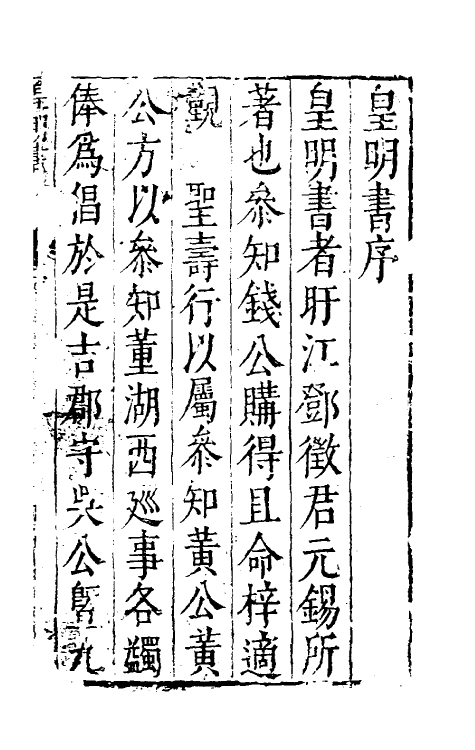 皇明書序
皇明書者盱江鄧徵君元錫所
著也叅知錢公購得且命梓適
覲　聖壽行以屬叅知黃公黃
公方以叅知董湖西廵事各蠲
俸爲倡於是吉郡守吳公暨九